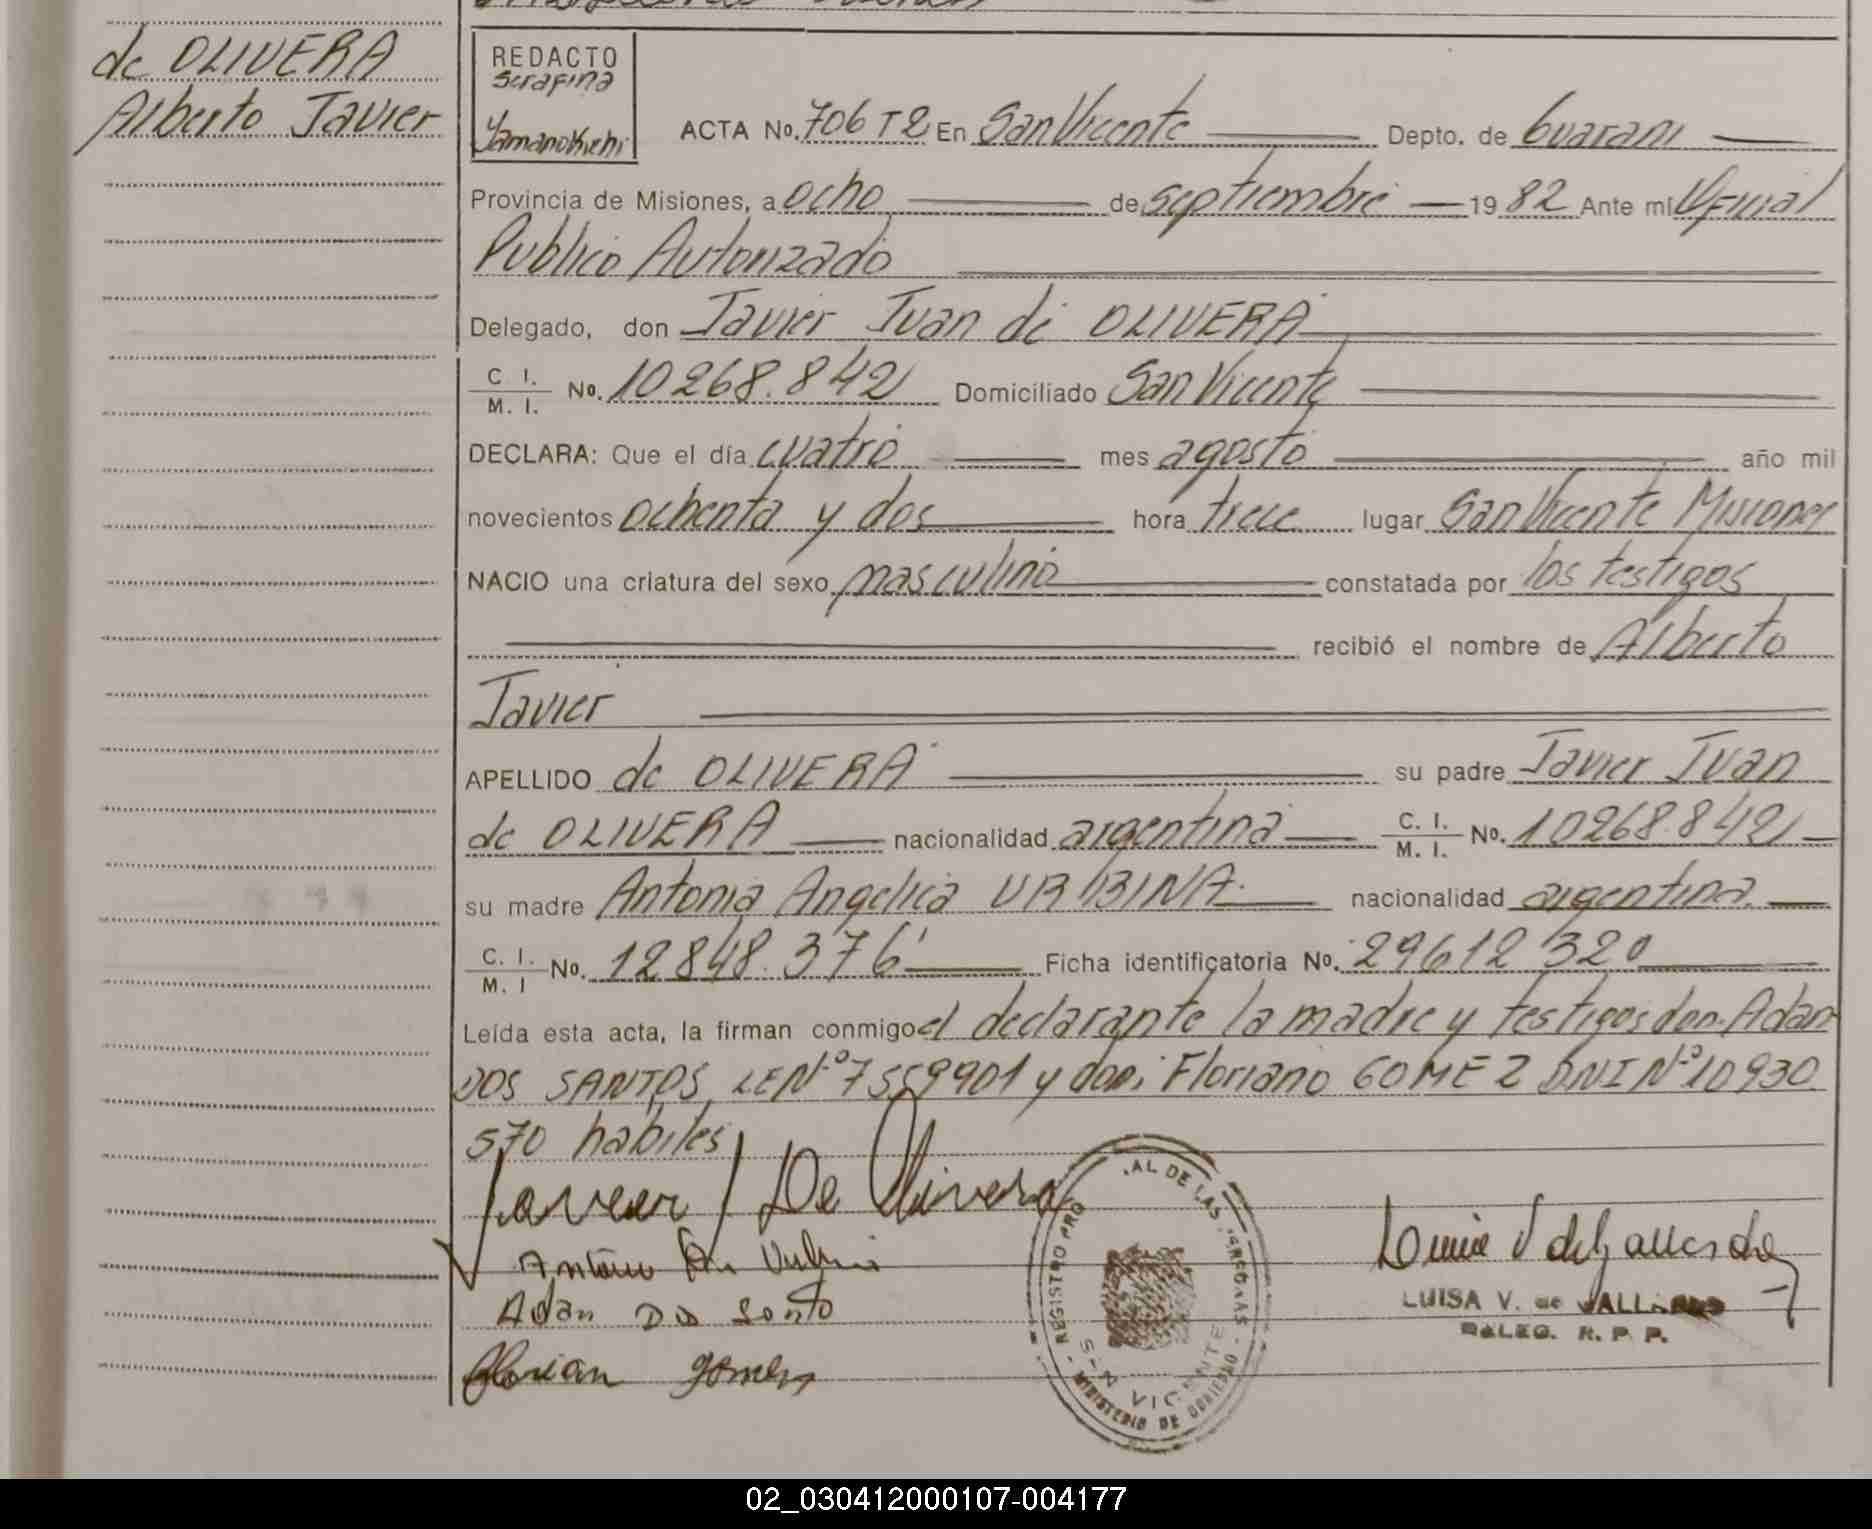 de OLIVERA
Alberto Javier
REDACTO
Serafina
Yamanokichi
ACTA No. 706 T2 En San Vicente Depto. de Guarani
Provincia de Misiones, a ocho de septiembre 1982 Ante mi Oficial
Publico Autorizado
Delegado, don Javier Juan de OLIVERA
C. I. / M. I. No. 10268.842 Domiciliado San Vicente
DECLARA: Que el día cuatro mes agosto año mil
novecientos ochenta y dos hora trece lugar San Vicente Misiones
NACIO una criatura del sexo masculino constatada por los testigos
recibió el nombre de Alberto
Javier
APELLIDO de OLIVERA su padre Javier Juan
de OLIVERA nacionalidad argentina C. I. / M. I. No. 10268.842
su madre Antonia Angelica URBINA nacionalidad argentina
C. I. / M. I No. 12848.376 Ficha identificatoria No. 29612320
Leída esta acta, la firman conmigo el declarante la madre y testigos don Adan
DOS SANTOS LE Nº 7559901 y don Floriano GOMEZ DNI Nº 10930
570 habiles
Javier J De Olivera
Adan Do Santo
Florian Gomez
REGISTRO PRO AL DE LAS PERSONAS
SAN VICENTE
MINISTERIO DE GOBIERNO
LUISA V. de
DELEG. R. P. P.
02_030412000107-004177